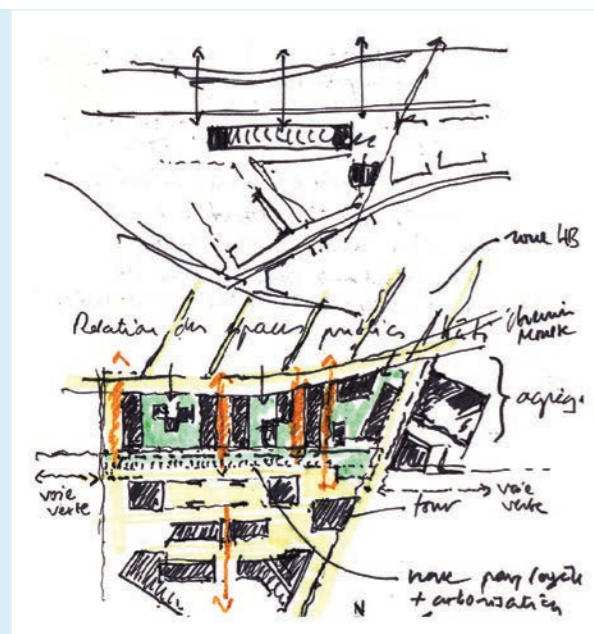 zone HB
Relation des espaces publics
chemin
agrég.
voie
verte
voie
verte
tour
+ arborisation
N